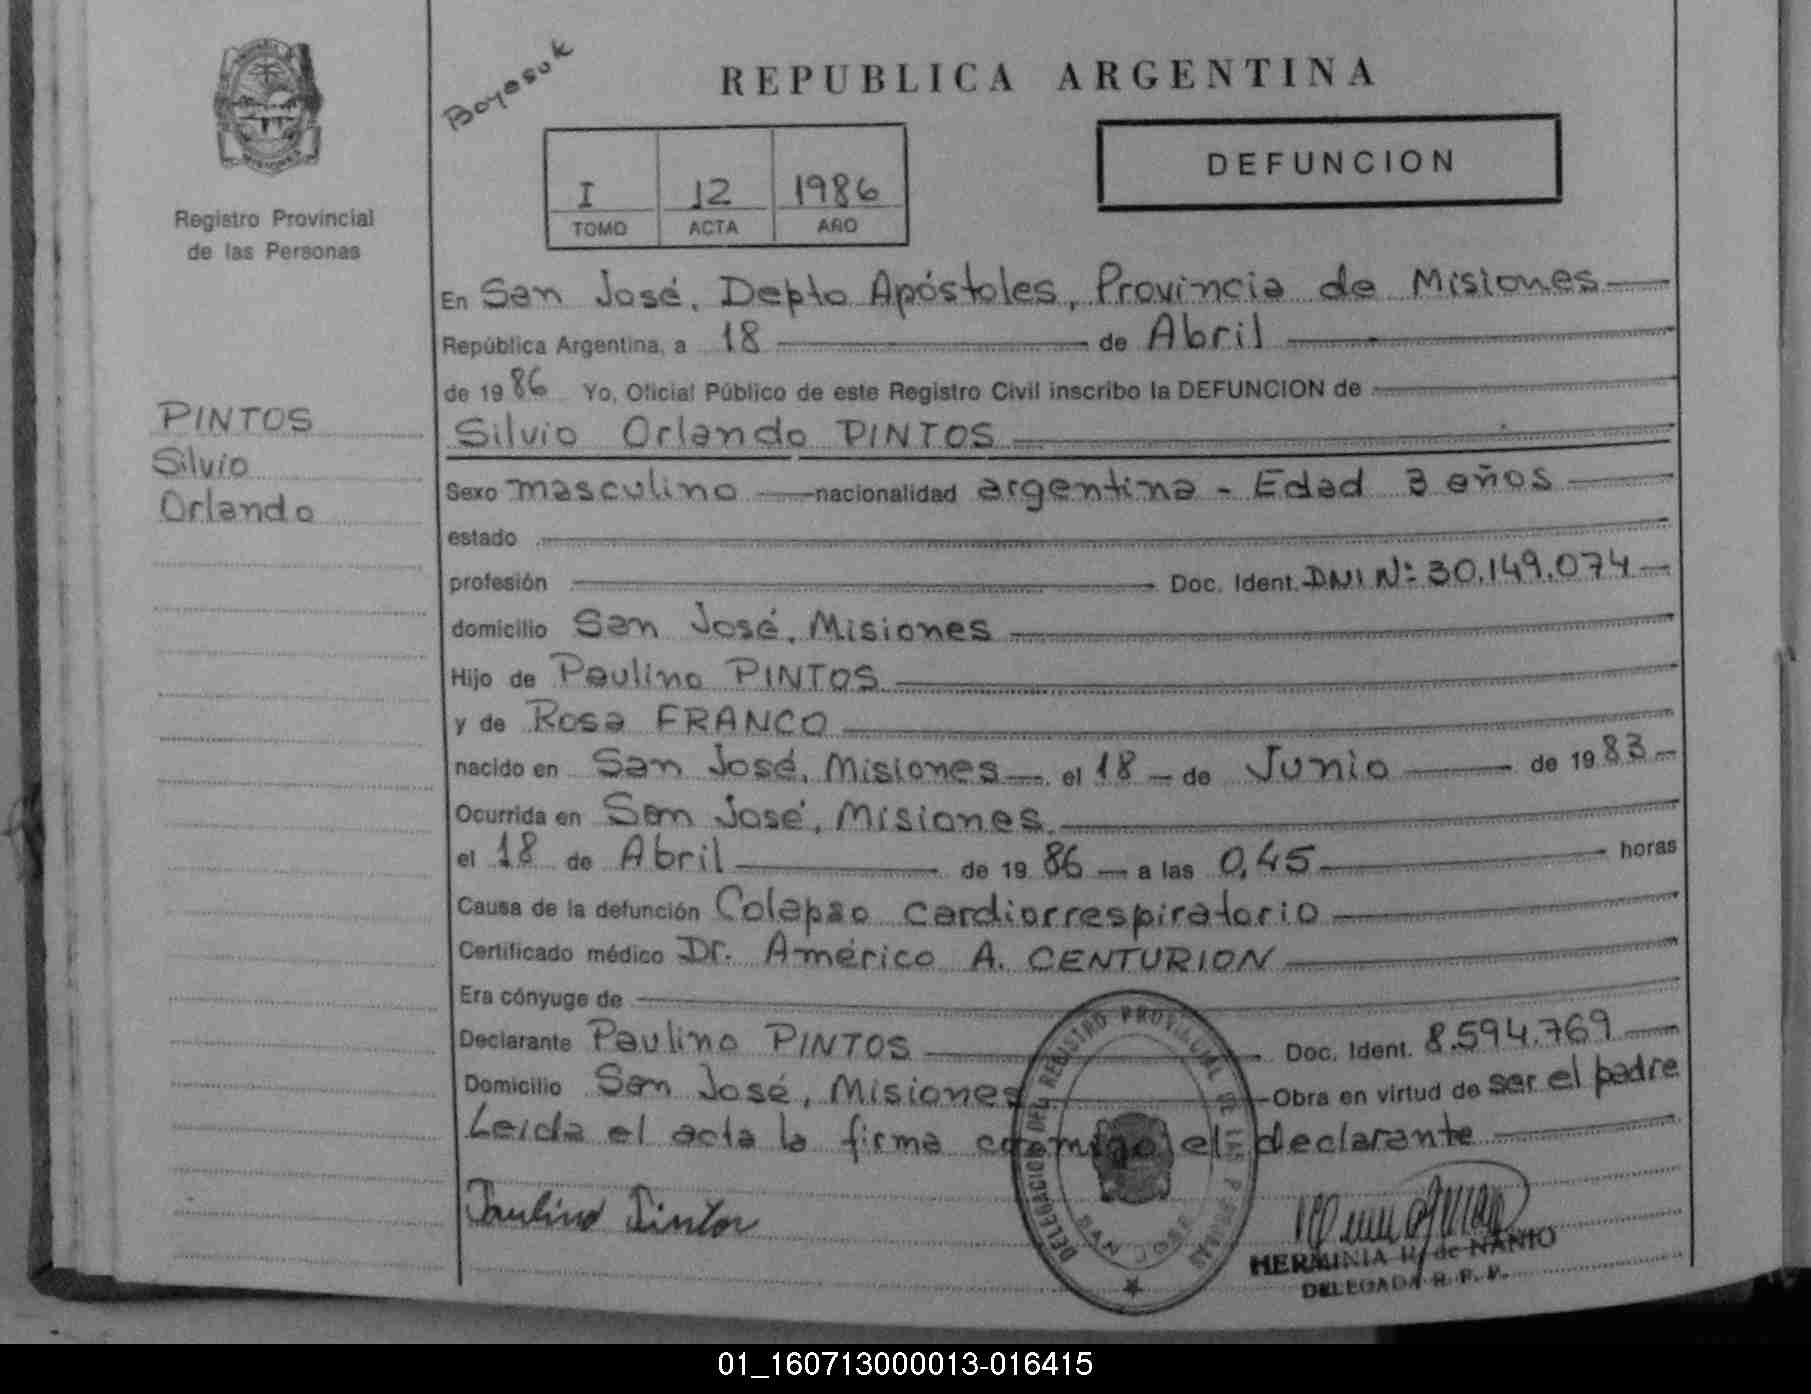 REPUBLICA ARGENTINA
DEFUNCION
I 12 1986
TOMO ACTA AÑO
MISIONES
Registro Provincial
de las Personas
PINTOS
Silvio
Orlando
En San José, Depto Apóstoles, Provincia de Misiones
República Argentina, a 18 de Abril
de 1986 Yo, Oficial Público de este Registro Civil inscribo la DEFUNCION de
Silvio Orlando PINTOS
Sexo masculino nacionalidad argentina - Edad 3 años
estado
profesión Doc. Ident. DNI Nº 30.149.074
domicilio San José, Misiones
Hijo de Paulino PINTOS
y de Rosa FRANCO
nacido en San José, Misiones el 18 de Junio de 1983
Ocurrida en San José, Misiones.
el 18 de Abril de 1986 a las 0,45 horas
Causa de la defunción Colapso cardiorrespiratorio
Certificado médico Dr. Américo A. CENTURION
Era cónyuge de
Declarante Paulino PINTOS Doc. Ident. 8.594.769
Domicilio San José, Misiones Obra en virtud de ser el padre
Leída el acta la firma conmigo el declarante
Paulino Pintos
DELEGACION DEL REGISTRO PROVINCIAL DE LAS PERSONAS
SAN JOSE
HERMINIA H. de NANIO
DELEGADA R. P. P.
01_160713000013-016415